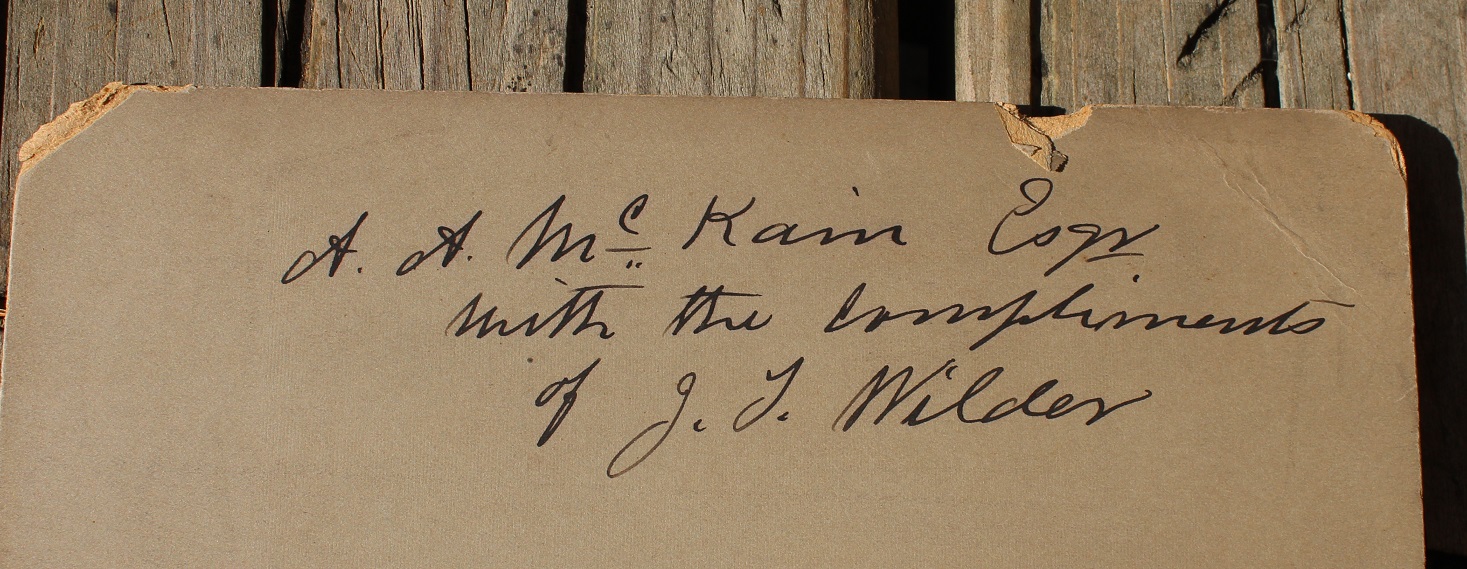 A. A. Mc Kain Esqr
with the compliments
of J. T. Wilder